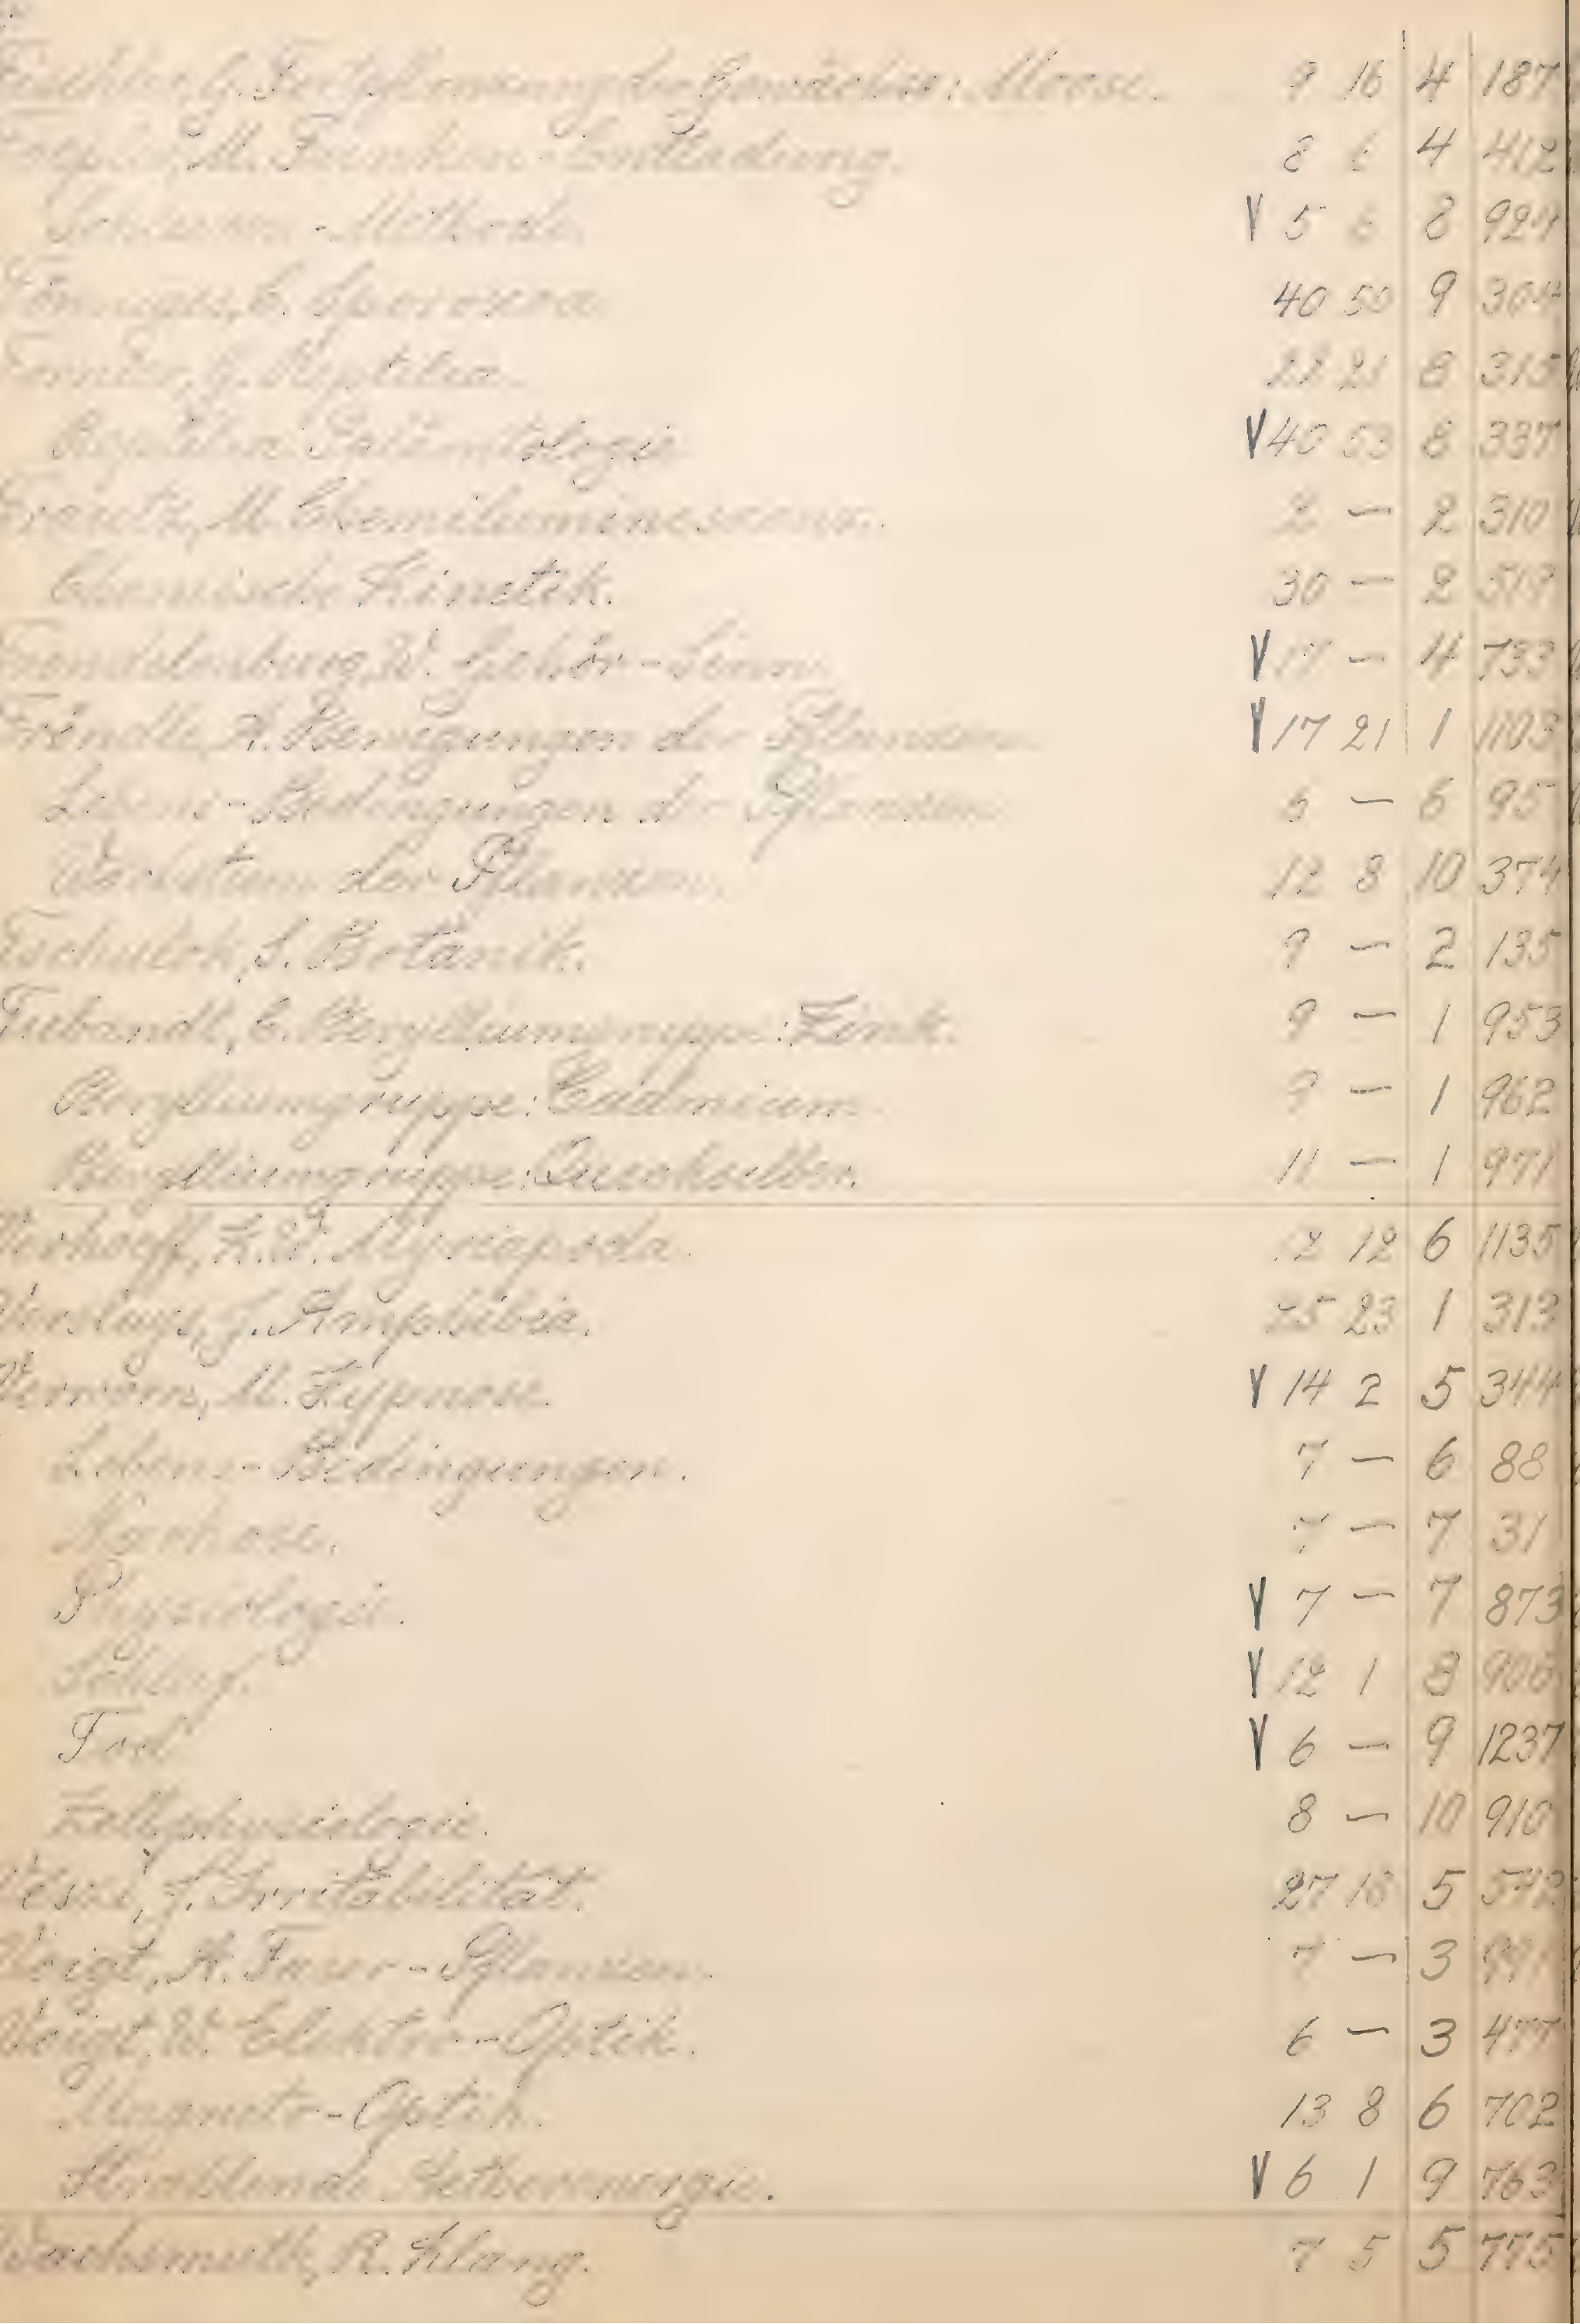 Fortpflanzung der Gewächse: Moose. 9 16 4 187
M. Funken-Entladung. 8 6 4 412
-Methode V 5 6 8 924
C. Sporozoa 40 50 9 304
G. Reptilia 21 8 315
Reptilien Paläontologie V 40 53 8 337
Trautz, M. Chemilumineszenz. 2 — 2 310
Chemische Kinetik. 30 — 2 519
Trendelenburg, W. Gehör-Sinn V 17 — 4 733
Tröndle, A. Bewegungen der Pflanzen V 17 21 1 1103
Lebens-Bedingungen der Pflanzen 6 — 6 95
Wachstum der Pflanzen. 12 8 10 374
Tschulok, S. Botanik. 9 — 2 135
Tubandt, C. Berylliumgruppe: Zink. 9 — 1 953
Berylliumgruppe: Cadmium 9 — 1 962
Berylliumgruppe: Quecksilber. 11 — 1 971
Verhoeff, K. W. Myriapoda. 12 12 6 1135
Versluys, J. Amphibia. 25 23 1 313
Verworn, M. Hypnose. V 14 2 5 344
Lebens-Bedingungen. 7 — 6 88
Narkose. 7 — 7 31
Physiologie. V 7 — 7 873
Schlaf. V 12 1 8 906
Tod V 6 — 9 1237
Zellphysiologie. 8 — 10 910
J. Irritabilität. 27 18 5 542
Voigt, A. Faser-Pflanzen. 7 — 3
Voigt, W. Elektro-Optik. 6 — 3 477
Magneto-Optik. 13 8 6 702
Strahlende Aetherenergie. V 6 1 9 763
Wachsmuth, R. Klang. 7 5 5 775